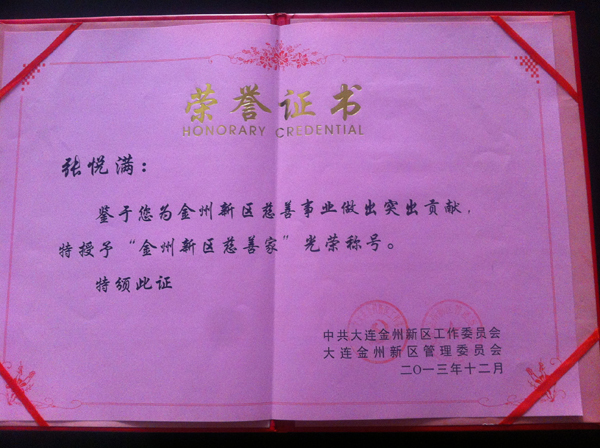 荣誉证书
HONORARY CREDENTIAL
张悦满：
鉴于您为金州新区慈善事业做出突出贡献，
特授予“金州新区慈善家”光荣称号。
特颁此证
中共大连金州新区工作委员会
大连金州新区管理委员会
二〇一三年十二月